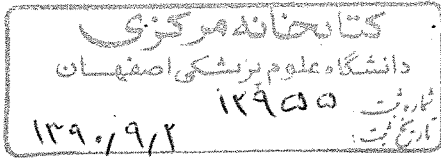 کتابخانه مرکزی
دانشگاه علوم پزشکی اصفهان
شماره ثبت ۱۲۹۵۵
تاریخ ثبت: ۱۳۹۰/۹/۲